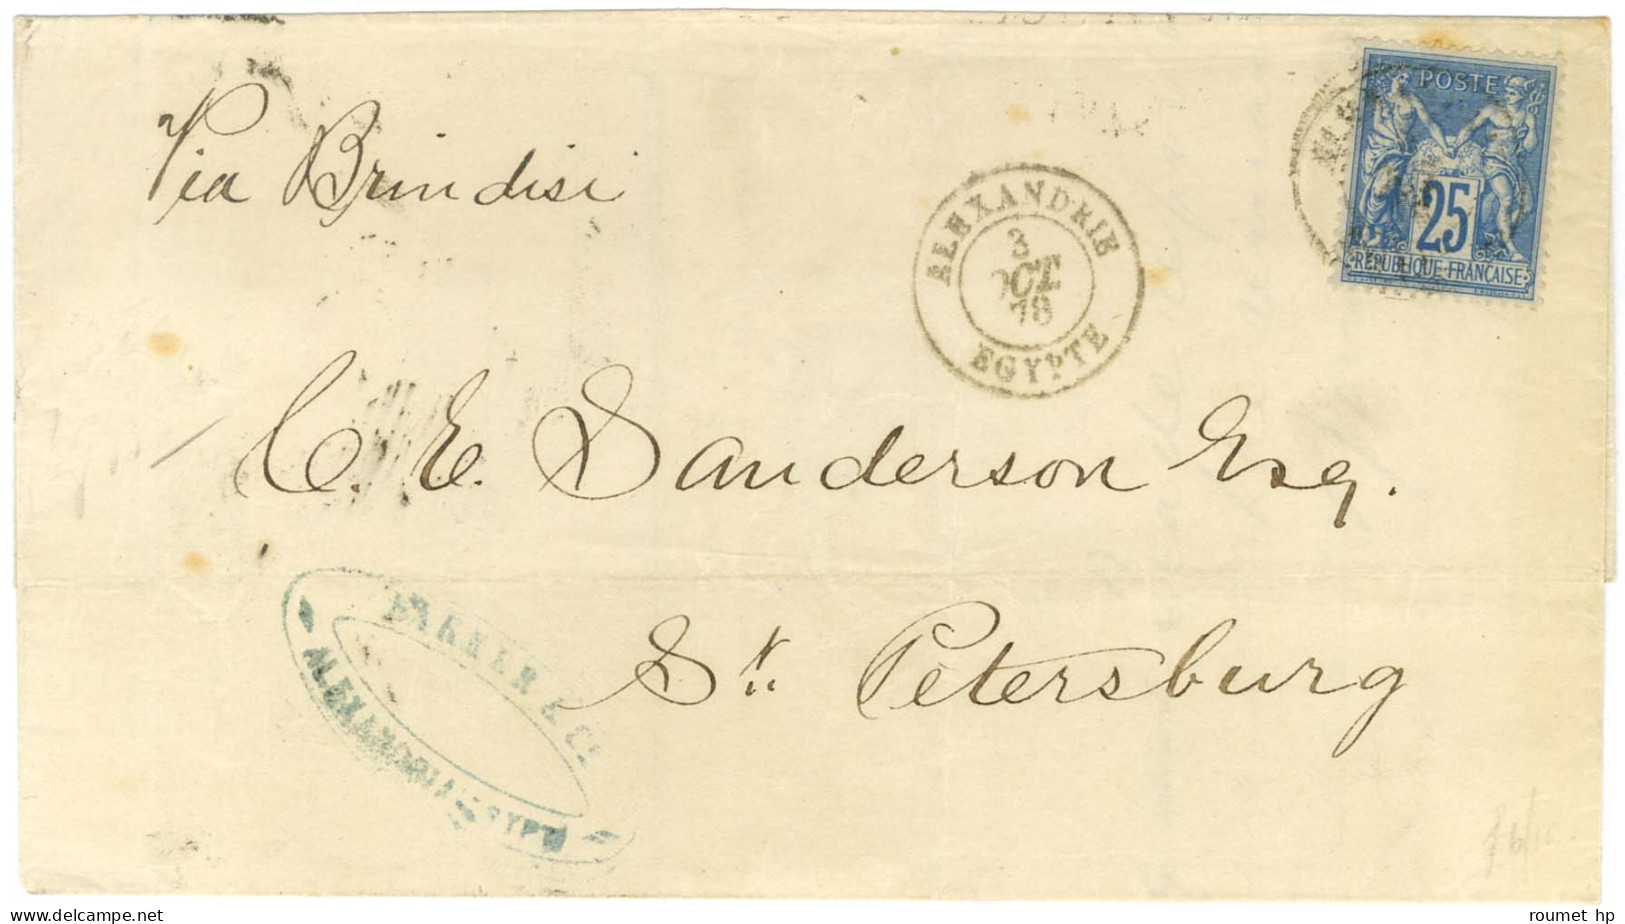 Via Brindisi
POSTE
25
REPUBLIQUE FRANÇAISE
ALEXANDRIE
3
OCT.
78
EGYPTE
C. E. Sanderson Esq.
St. Petersburg
BARKER & Co.
ALEXANDRIA EGYPT
roumet hp